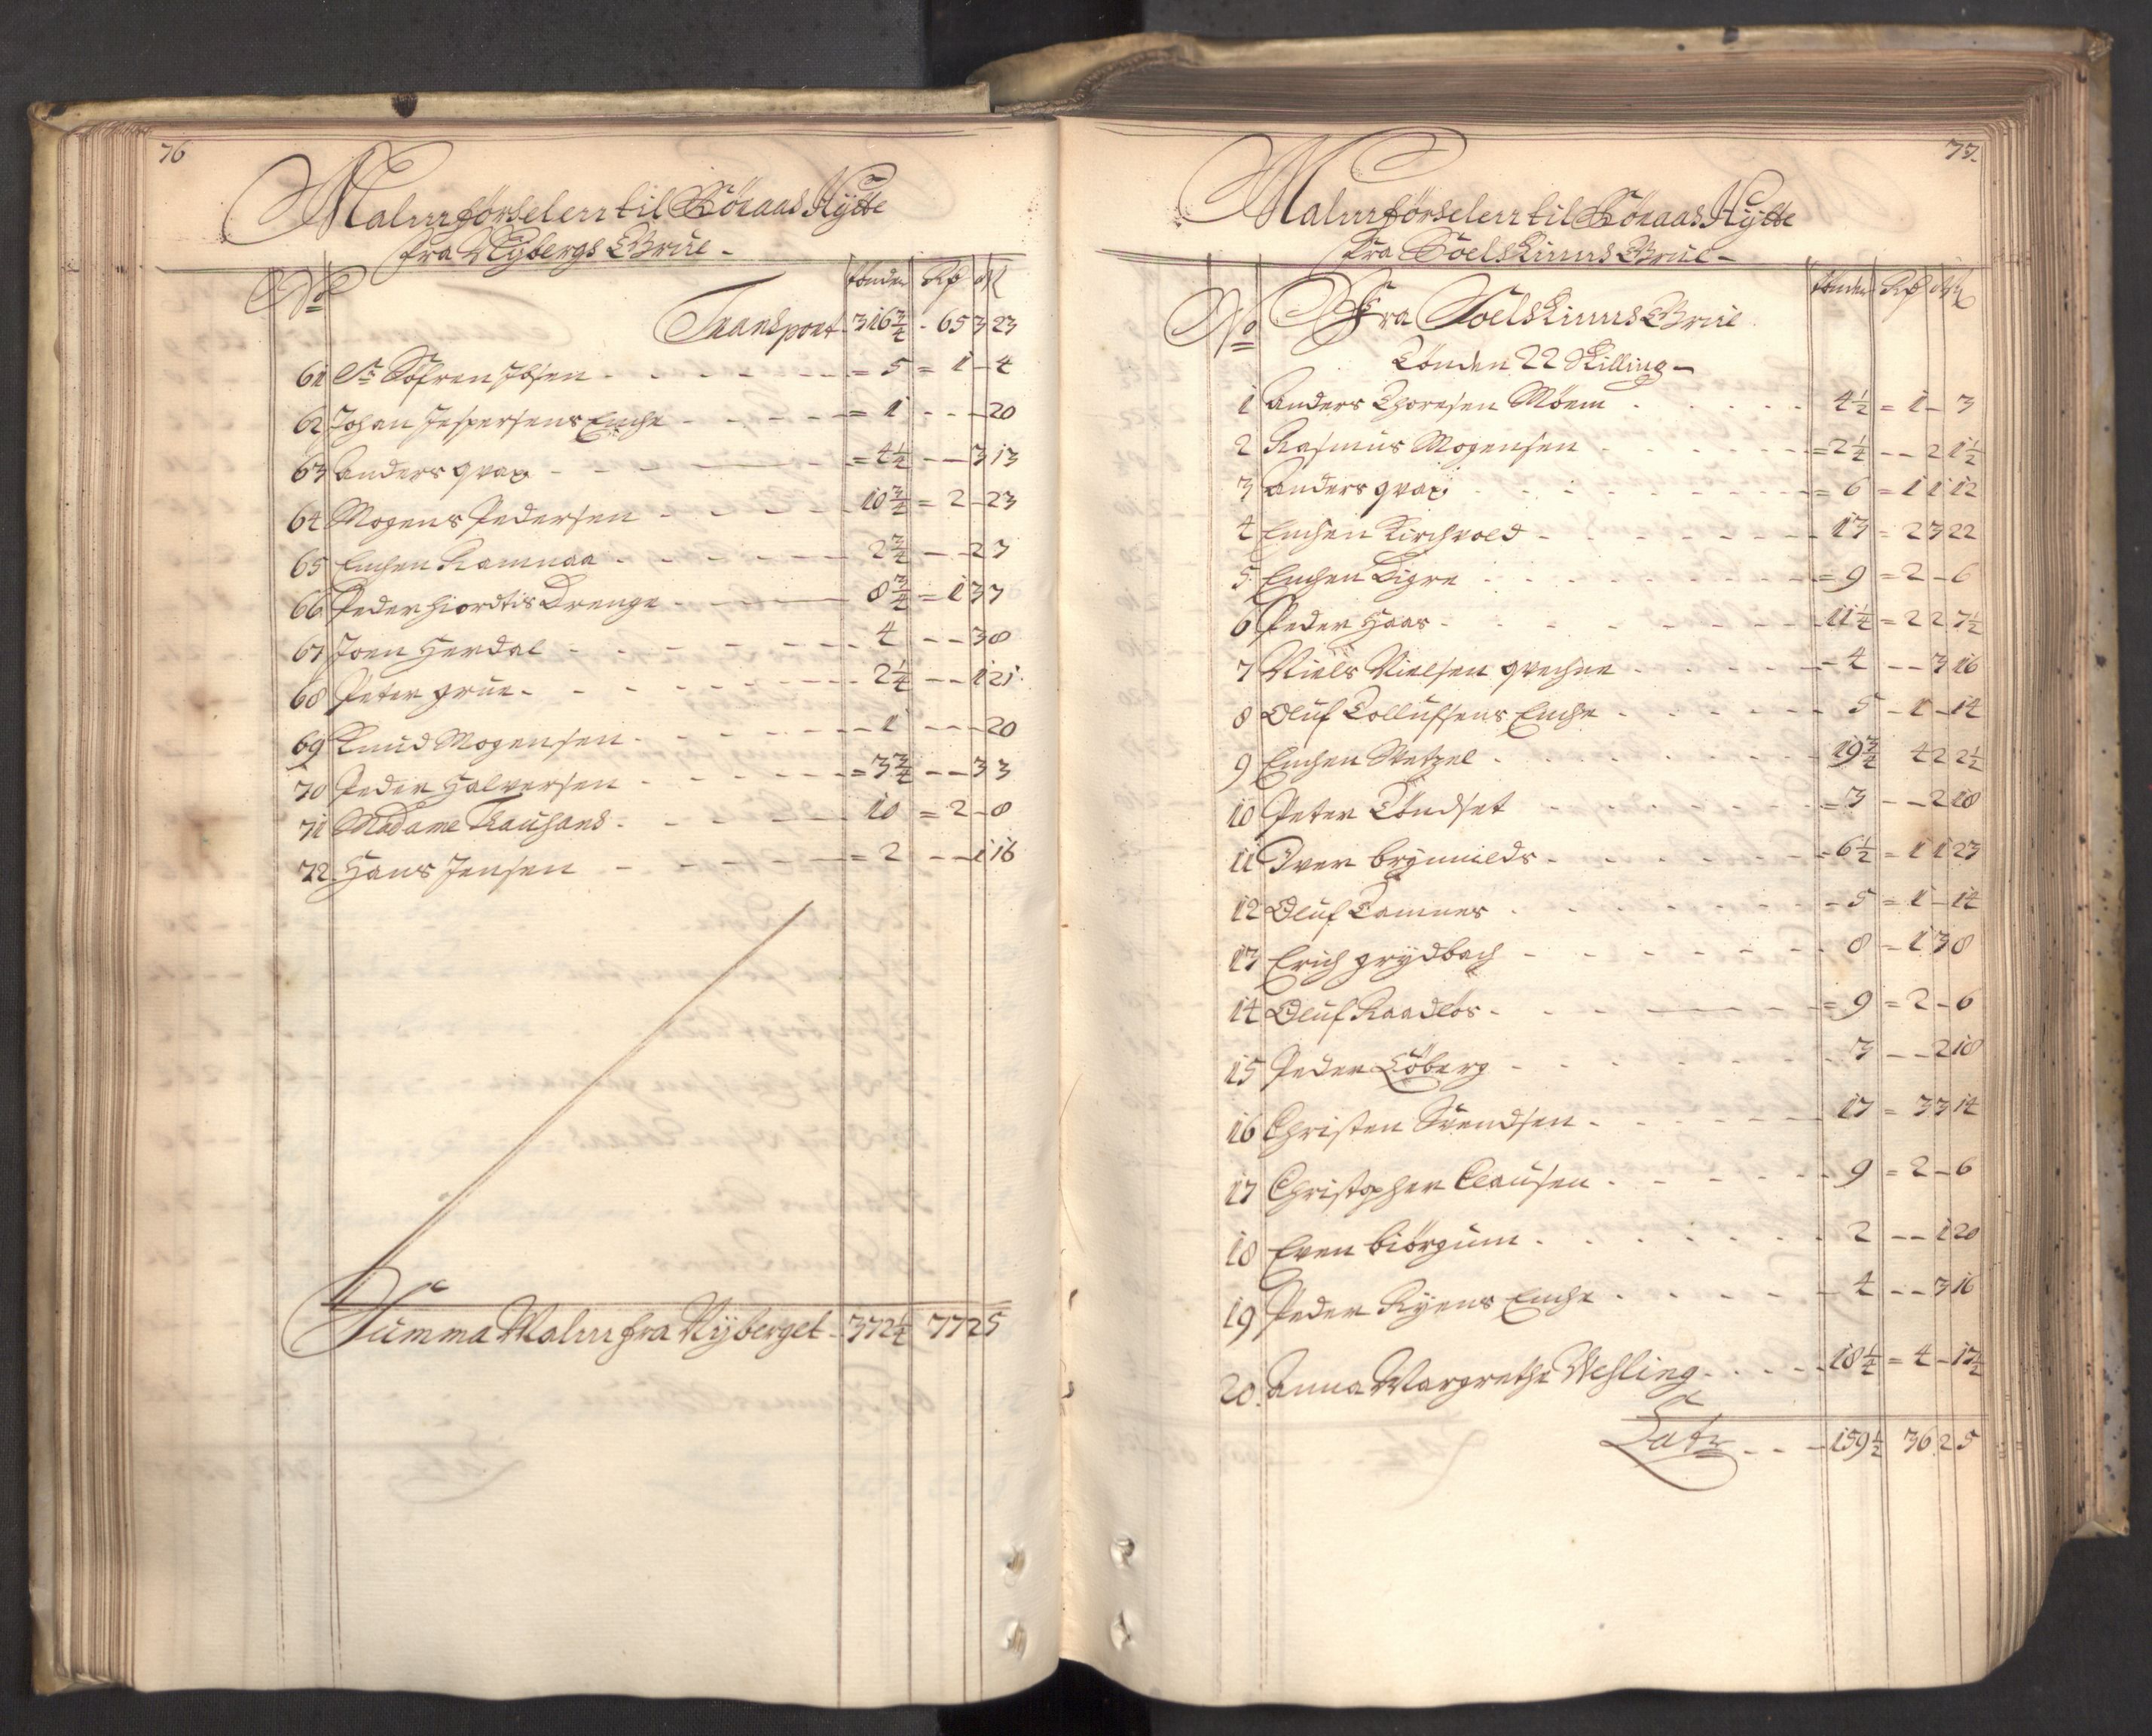 76
Malmförselen til Röraas Hytte
fra Nybergs Grue
No Tönder Rd M
Transport 316 3/4 - 65 3 23
61 Sr Söfren Ibsen = 5 = 1 - 4
62 Johan Jespersens Enche = 1 - - 20
63 Anders qvax = 4 1/4 - - 3 13
64 Mogens Pedersen 10 3/4 = 2 - 23
65 Enchen Ramnaa 2 3/4 - - 2 3
66 Peder Hiordtis Drenge 8 3/4 = 1 3 7
67 Joen Herdal 4 - - 3 8
68 Peter grue 2 1/4 - - 1 21
69 Knud Mogensen 1 - - 20
70 Peder Halversen = 3 3/4 - - 3 3
71 Madame Thauhans 10 = 2 - 8
72 Hans Jensen = 2 - - 1 16
Summa Malm fra Nyberget 372 1/4 77 2 5
77.
Malmförselen til Röraas Hytte
fra Soelskinns Grue
Tönder Rd M
No Fra Soelskinns Grue
Tönden 22 Skilling
1 Anders Thoresen Möem 4 1/2 = 1 - 3
2 Rasmus Mogensen = 2 1/4 - - 2 1 1/2
3 Anders qvax = 6 = 1 1 12
4 Enchen Kirchvold 13 = 2 3 22
5 Enchen Digre = 9 = 2 - 6
6 Peder Haas 11 1/4 = 2 2 7 1/2
7 Niels Nielsen qvechne - 4 - - 3 16
8 Oluf Tollufsens Enche 5 - 1 - 14
9 Enchen Wetzel 19 3/4 4 2 2 1/2
10 Peter Töndset = 3 - - 2 18
11 Iver brynnilds = 6 1/2 = 1 1 23
12 Oluf Tamnes - 5 = 1 - 14
13 Erich grydbach 8 = 1 3 8
14 Oluf Raadlös = 9 = 2 - 6
15 Peder Löberg 3 - - 2 18
16 Christen Svendsen 17 = 3 3 14
17 Christopher Clausen 9 = 2 - 6
18 Even biörgum 2 - - 1 20
19 Peder Ryens Enche 4 - - 3 16
20. Anna Margrethe Wesling 18 1/4 = 4 - 17 1/2
Latr 159 1/2 36 2 5